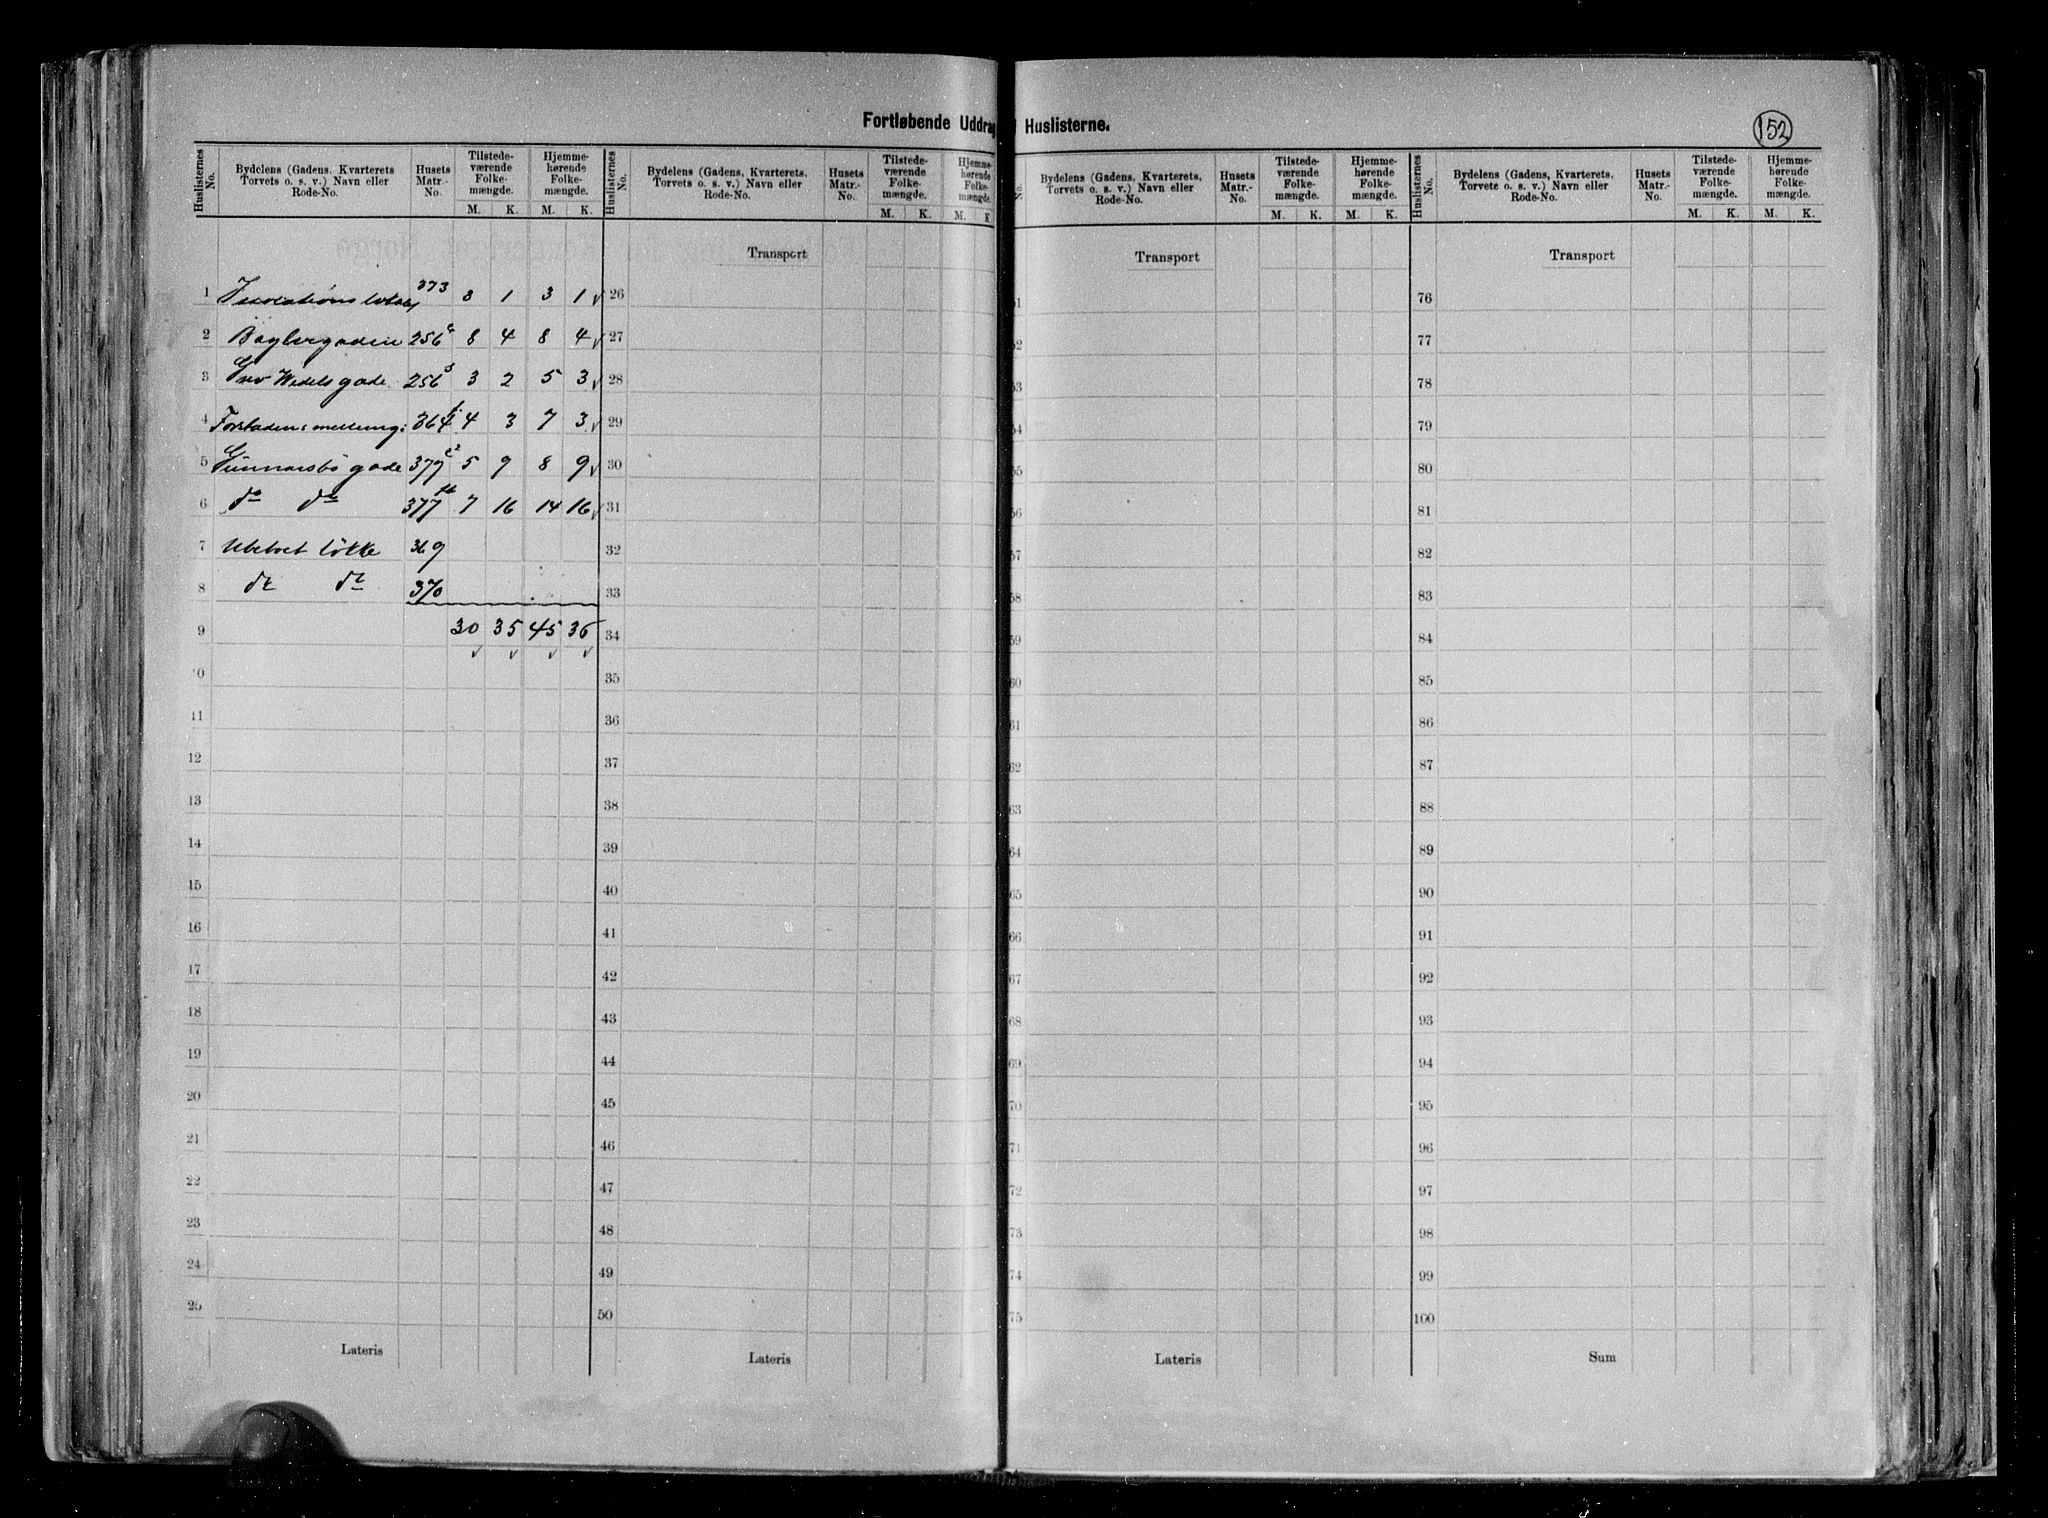 Fortløbende Uddrag Huslisterne.
152
Huslisternes No. Bydelens (Gadens, Kvarterets, Torvets o. s. v.) Navn eller Rode-No. Husets Matr.-No. Tilstedeværende Folkemængde. M. K. Hjemmehørende Folkemængde. M. K.
1 373 3 1 3 1 ✓
2 Baglergaden 256 8 4 8 4 ✓
3 Grev Wedels gade 256 3 2 5 3 ✓
4 364 4 3 7 3 ✓
5 Gunnarsbø gade 377 5 9 8 9 ✓
6 do do 377 7 16 14 16 ✓
7 Ubeboet løkke 369
8 do do 370
9 30 35 45 36
✓ ✓ ✓ ✓
10
11
12
13
14
15
16
17
18
19
20
21
22
23
24
25
Lateris
Huslisternes No. Bydelens (Gadens, Kvarterets, Torvets o. s. v.) Navn eller Rode-No. Husets Matr.-No. Tilstedeværende Folkemængde. M. K. Hjemmehørende Folkemængde. M. K
Transport
26
27
28
29
30
31
32
33
34
35
36
37
38
39
40
41
42
43
44
45
46
47
48
49
50
Lateris
No. Bydelens (Gadens, Kvarterets, Torvets o. s. v.) Navn eller Rode-No. Husets Matr.-No. Tilstedeværende Folkemængde. M. K. Hjemmehørende Folkemængde. M. K.
Transport
51
52
53
54
55
56
57
58
59
60
61
62
63
64
65
66
67
68
69
70
71
72
73
74
75
Lateris
Huslisternes No. Bydelens (Gadens, Kvarterets, Torvets o. s. v.) Navn eller Rode-No. Husets Matr.-No. Tilstedeværende Folkemængde. M. K. Hjemmehørende Folkemængde. M. K.
Transport
76
77
78
79
80
81
82
83
84
85
86
87
88
89
90
91
92
93
94
95
96
97
98
99
100
Sum